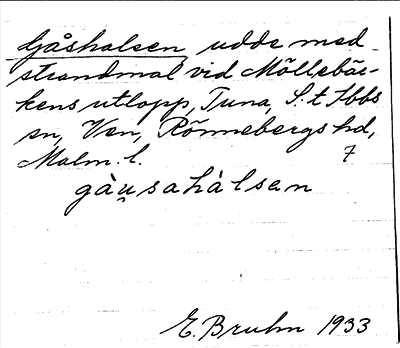 Gåshalsen, udde med
strandmal vid Möllebäc-
kens utlopp, Tuna, S:t Ibbs
sn, Ven, Rönnebergs hd,
Malm. l. 7
gàu̯sahàlsen
E. Bruhn 1933